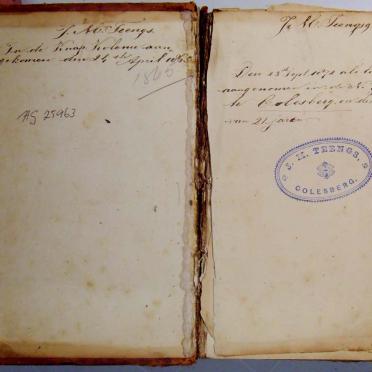 J. M. Teengs.
In de Kaap Kolonie aan
gekomen den 14th April 1863
1863
AG 25963
J. M. Teengs
Den 23 Sept 1872 als
aangenomen
te Colesberg, in den
van 21 jaren
J. M. TEENGS,
COLESBERG.